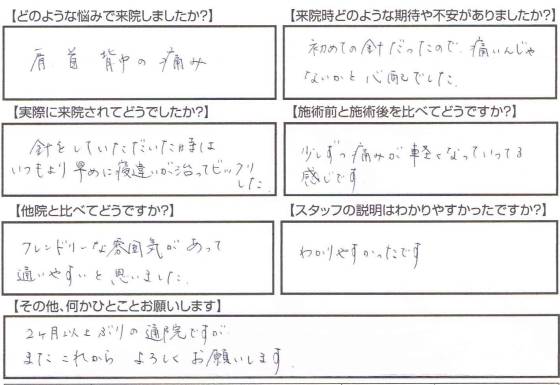 【どのような悩みで来院しましたか?】
肩 首 背中の痛み
【来院時どのような期待や不安がありましたか?】
初めての針だったので、痛いんじゃ
ないかと心配でした。
【実際に来院されてどうでしたか?】
針をしていただいた時は
いつもより早めに寝違いが治ってビックリ
した。
【施術前と施術後を比べてどうですか?】
少しずつ痛みが軽くなっていってる
感じです
【他院と比べてどうですか?】
フレンドリーな雰囲気があって
通いやすいと思いました。
【スタッフの説明はわかりやすかったですか?】
わかりやすかったです
【その他、何かひとことお願いします】
2ヶ月以上ぶりの通院ですが
またこれから よろしくお願いします。